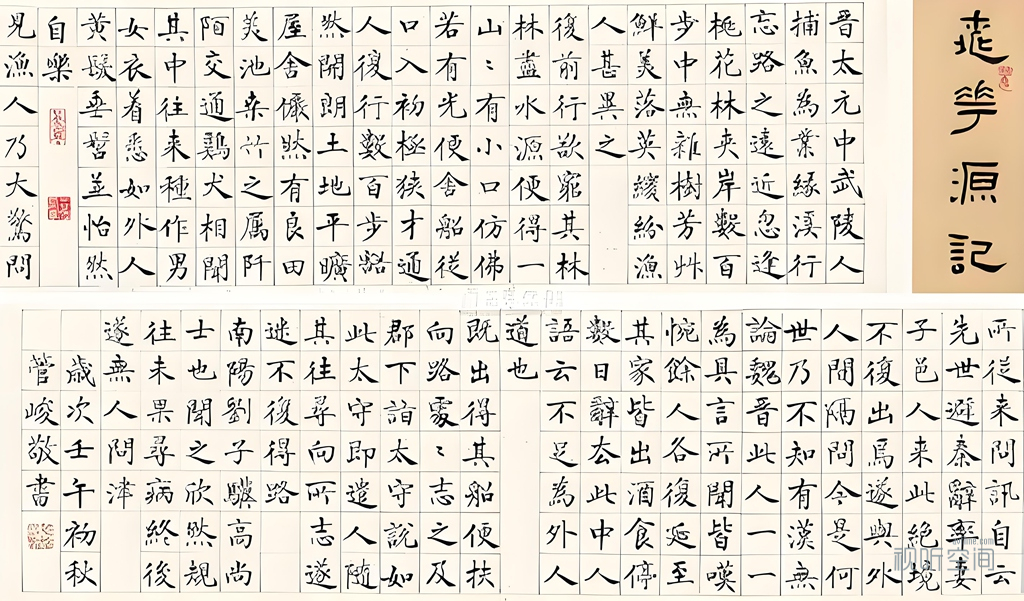 桃華源記
晋太元中武陵人
捕魚為業緣溪行
忘路之遠近忽逢
桃花林夾岸數百
步中無雜樹芳艸
鮮美落英繽紛漁
人甚異之
復前行欲窮其林
林盡水源便得一
山〻有小口仿佛
若有光便舍船從
口入初極狹才通
人復行數百步豁
然開朗土地平曠
屋舍儼然有良田
美池桑竹之属阡
陌交通鷄犬相聞
其中往来種作男
女衣着悉如外人
黃髮垂髫並怡然
自樂
見漁人乃大驚問
所從来問訊自云
先世避秦辭率妻
子邑人来此絕境
不復出焉遂與外
人間隔問今是何
世乃不知有漢無
論魏晋此人一一
為具言所聞皆嘆
惋餘人各復延至
其家皆出酒食停
數日辭去此中人
語云不足為外人
道也
既出得其船便扶
向路處〻志之及
郡下詣太守說如
此太守即遣人隨
其往尋向所志遂
迷不復得路
南陽劉子驥高尚
士也聞之欣然規
往未果尋病終後
遂無人問津
歲次壬午初秋
菅峻敬書
视听空间